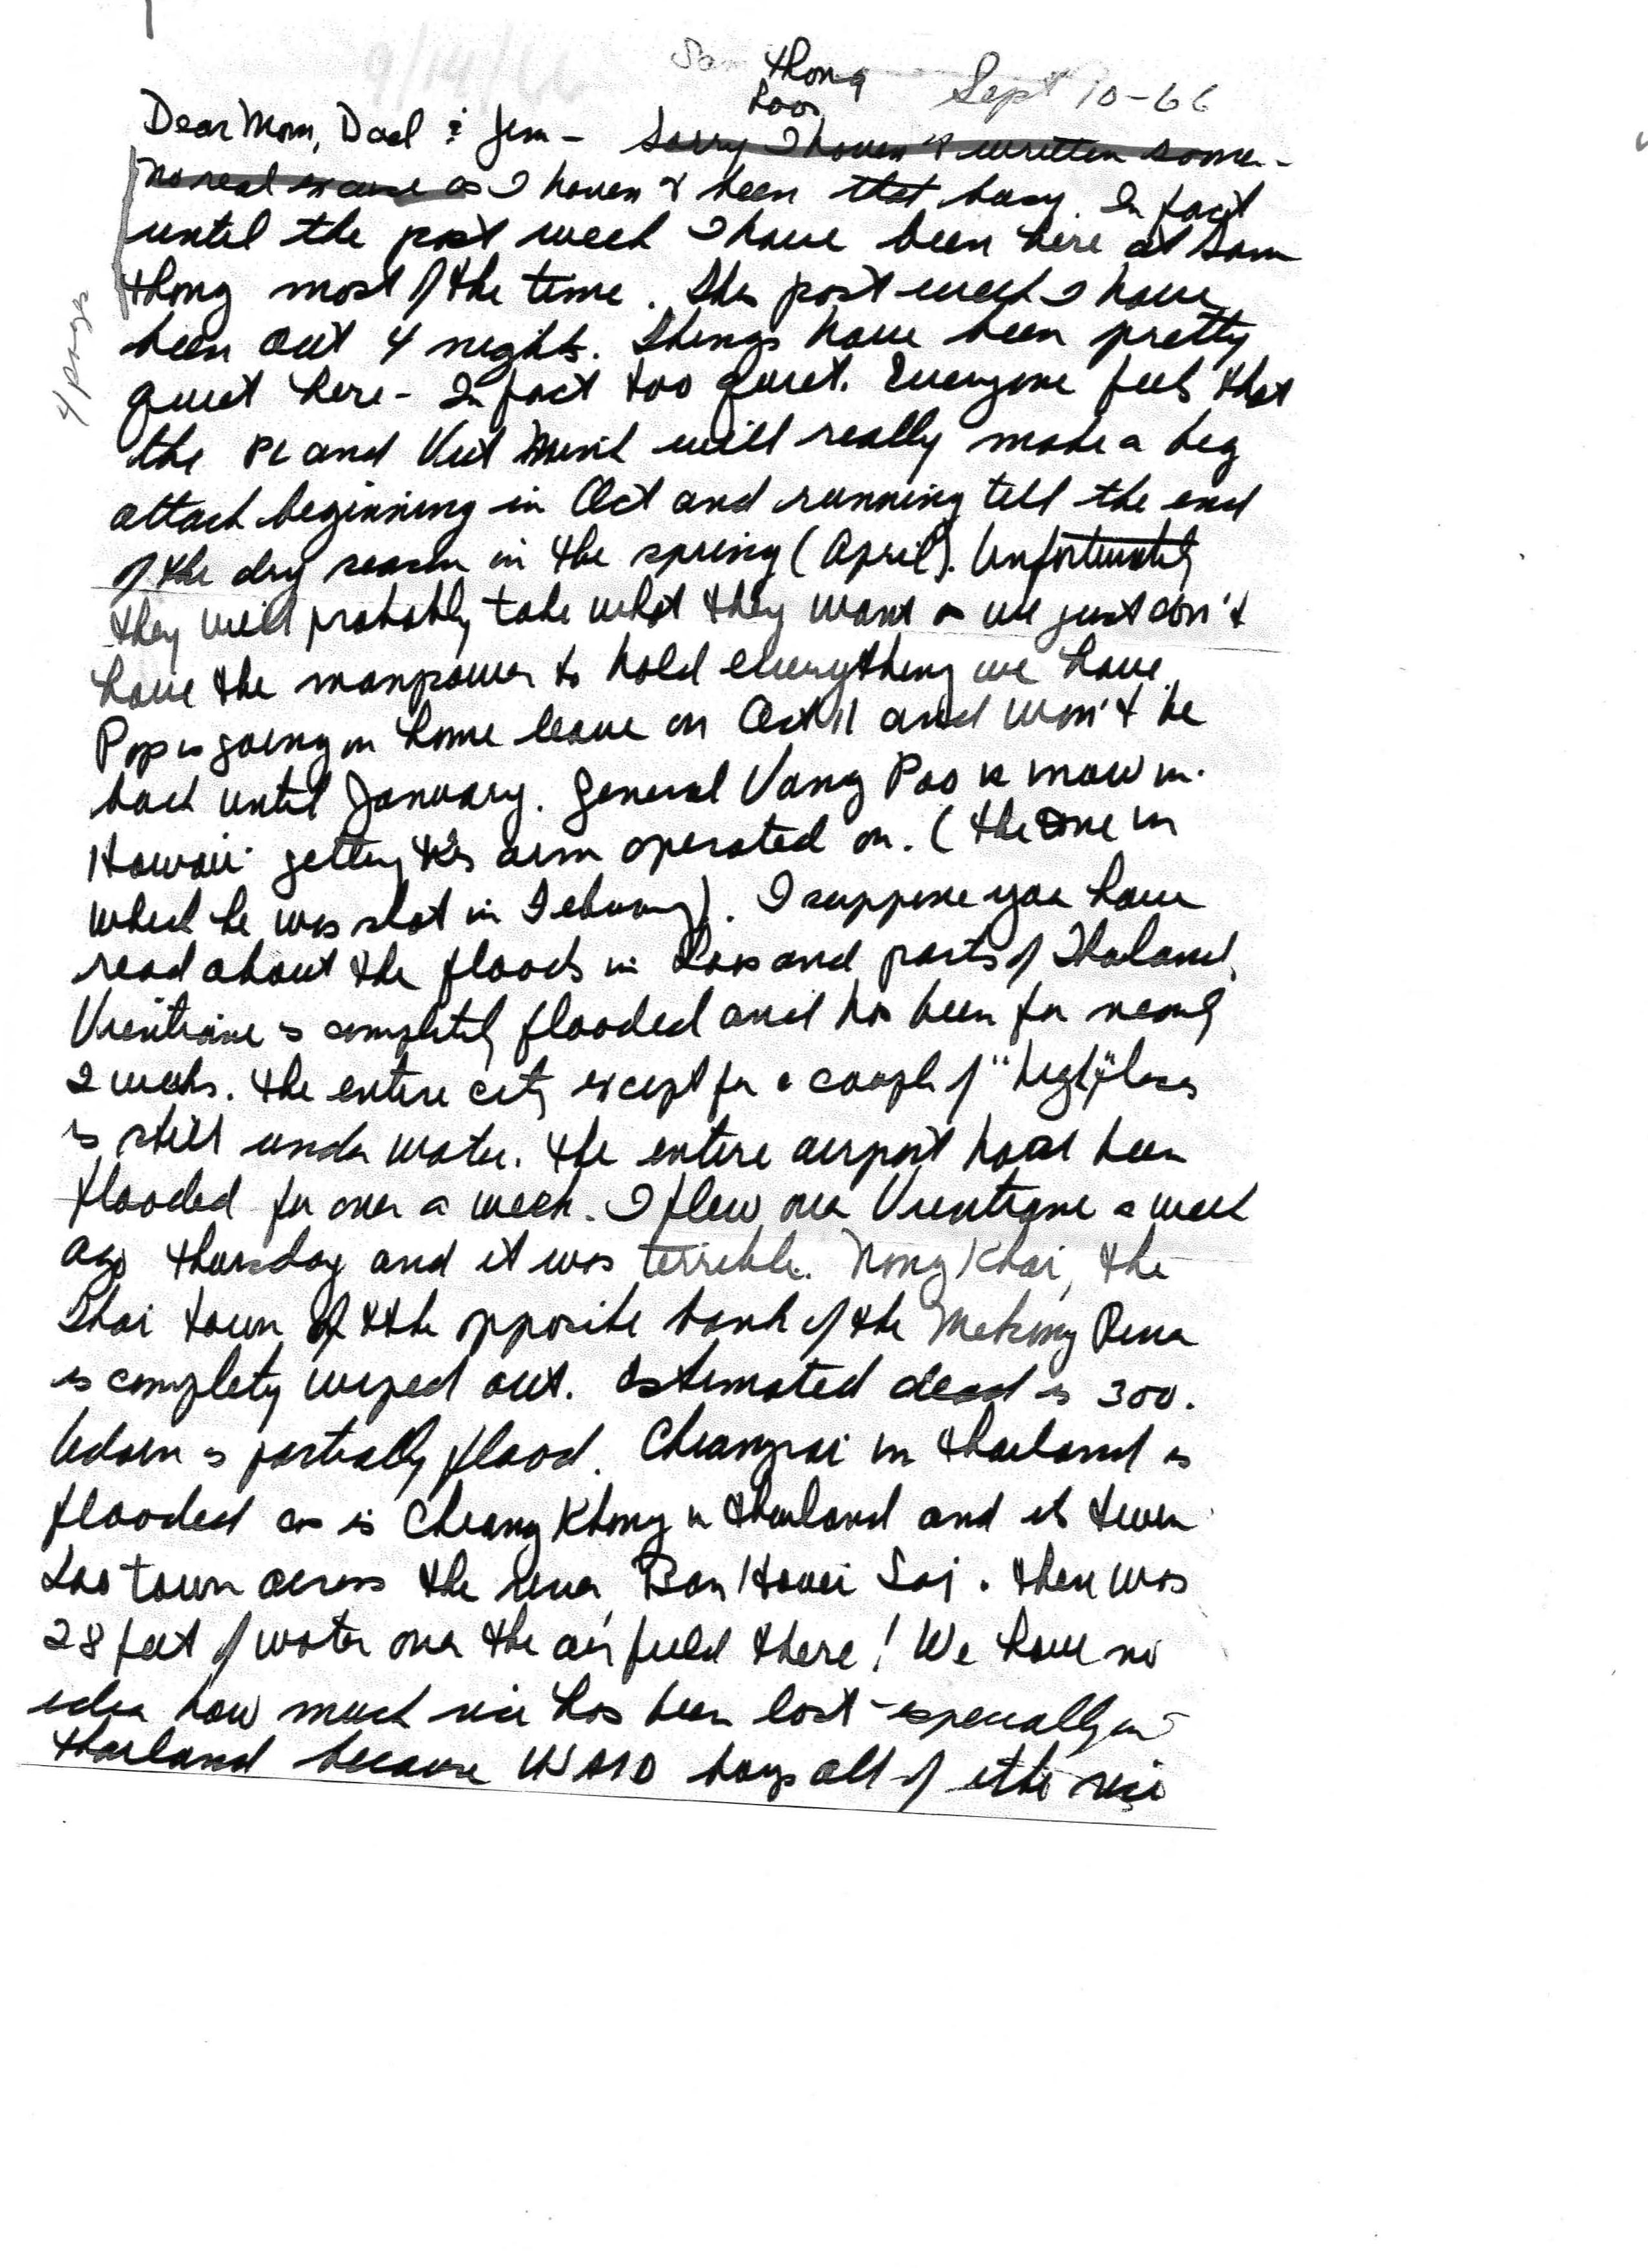 9/14/66
Sam Thong Sept 10-66
Laos
Dear Mom, Dad & Jim - Sorry I haven't written sooner -
No real excuse as I haven't been that busy. In fact
until the past week I have been here at Sam
Thong most of the time. This past week I have
been out 4 nights. Things have been pretty
quiet here - In fact too quiet. Everyone feels that
the PL and Viet Minh will really make a big
attack beginning in Oct and running till the end
of the dry season in the spring (April). Unfortunately
they will probably take what they want as we just don't
have the manpower to hold everything we have.
Pop is going on home leave on Oct 11 and won't be
back until January. General Vang Pao is now in
Hawaii getting his arm operated on. (the one in
which he was shot in February). I suppose you have
read about the floods in Laos and parts of Thailand.
Vientiane is completely flooded and has been for nearly
2 weeks. The entire city except for a couple of "high" places
is still under water. The entire airport has been
flooded for over a week. I flew over Vientiane a week
ago Thursday and it was terrible. Nong Khai, the
Thai town of the opposite bank of the Mekong River
is complety wiped out. Estimated dead is 300.
Udorn is partially flood. Chiangrai in Thailand is
flooded as is Chiang Khong in Thailand and its twin
Lao town across the river, Ban Houei Sai. There was
28 feet of water over the air field there! We have no
idea how much rice has been lost - especially in
Thailand because USAID buys all of its rice
4 pages